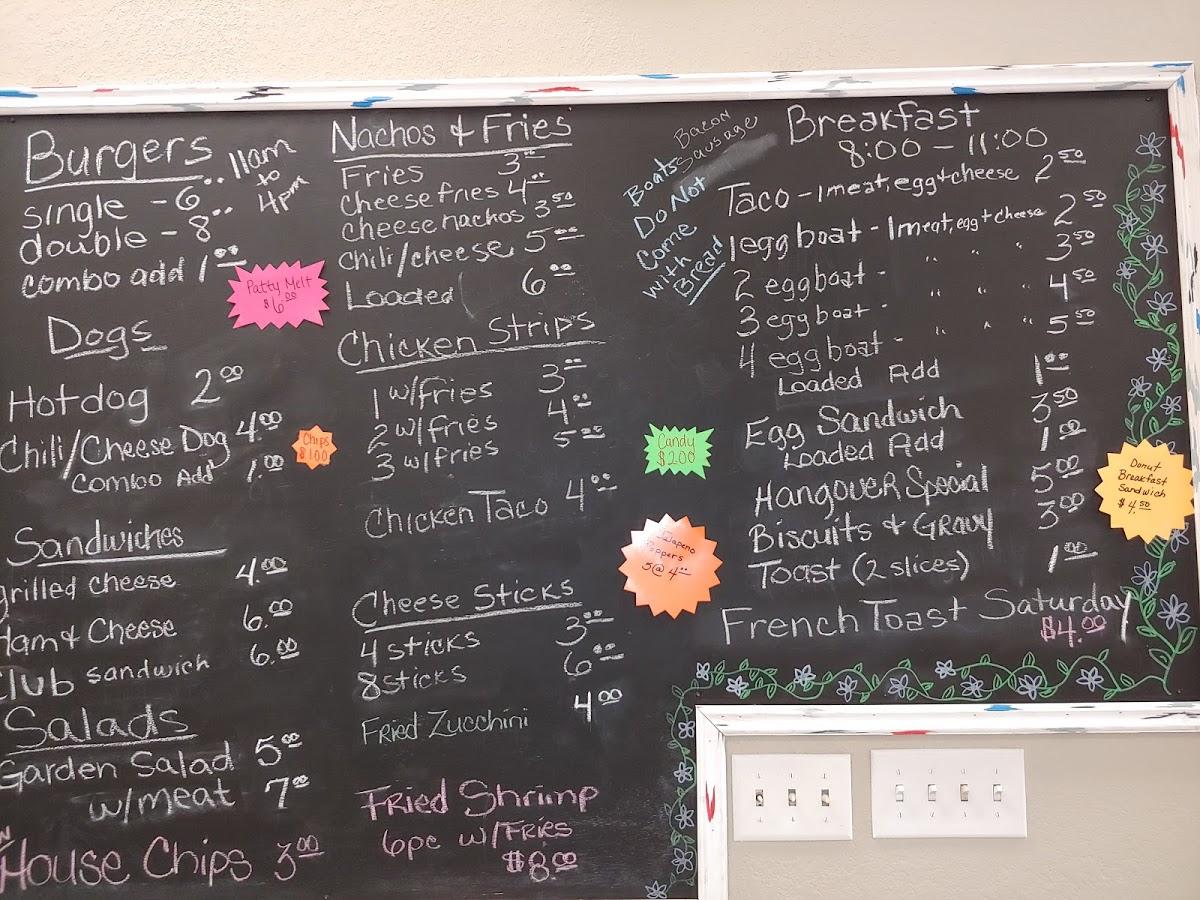 Burgers
11am
to
4pm
single - 6..
double - 8..
combo add 1.00
Patty Melt
$6.00
Dogs
Hotdog 2.00
Chili/Cheese Dog 4.00
Combo Add 1.00
Chips
$1.00
Sandwiches
grilled cheese 4.00
Ham & Cheese 6.00
Club sandwich 6.00
Salads
Garden Salad 5.00
w/meat 7.00
House Chips 3.00
Nachos & Fries
Fries 3.00
Cheese fries 4.00
cheese nachos 3.50
chili/cheese 5.00
Loaded 6.00
Chicken Strips
1 w/Fries 3.00
2 w/fries 4.00
3 w/fries 5.00
Chicken Taco 4.00
Cheese Sticks
4 sticks 3.00
8 sticks 6.00
Fried Zucchini 4.00
Fried Shrimp
6pc w/Fries
$8.00
Candy
$2.00
Jalapeno
Poppers
5@ 4.00
Bacon
Sausage
Boats
Do Not
Come
with
Bread
Breakfast
8:00 - 11:00
Taco - 1 meat, egg + cheese 2.50
1 egg boat - 1 meat, egg + cheese 2.50
2 egg boat - " " " 3.50
3 egg boat - " " " 4.50
4 egg boat - " " " 5.50
Loaded Add 1.00
Egg Sandwich 3.50
Loaded Add 1.00
Hangover Special 5.00
Biscuits & Gravy 3.00
Toast (2 slices) 1.00
French Toast Saturday
$4.00
Donut
Breakfast
Sandwich
$4.50